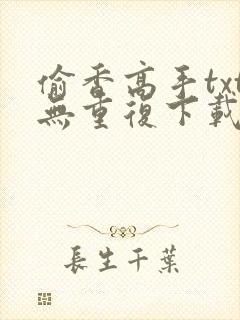 偷香高手txt
無重復下載
長生千葉